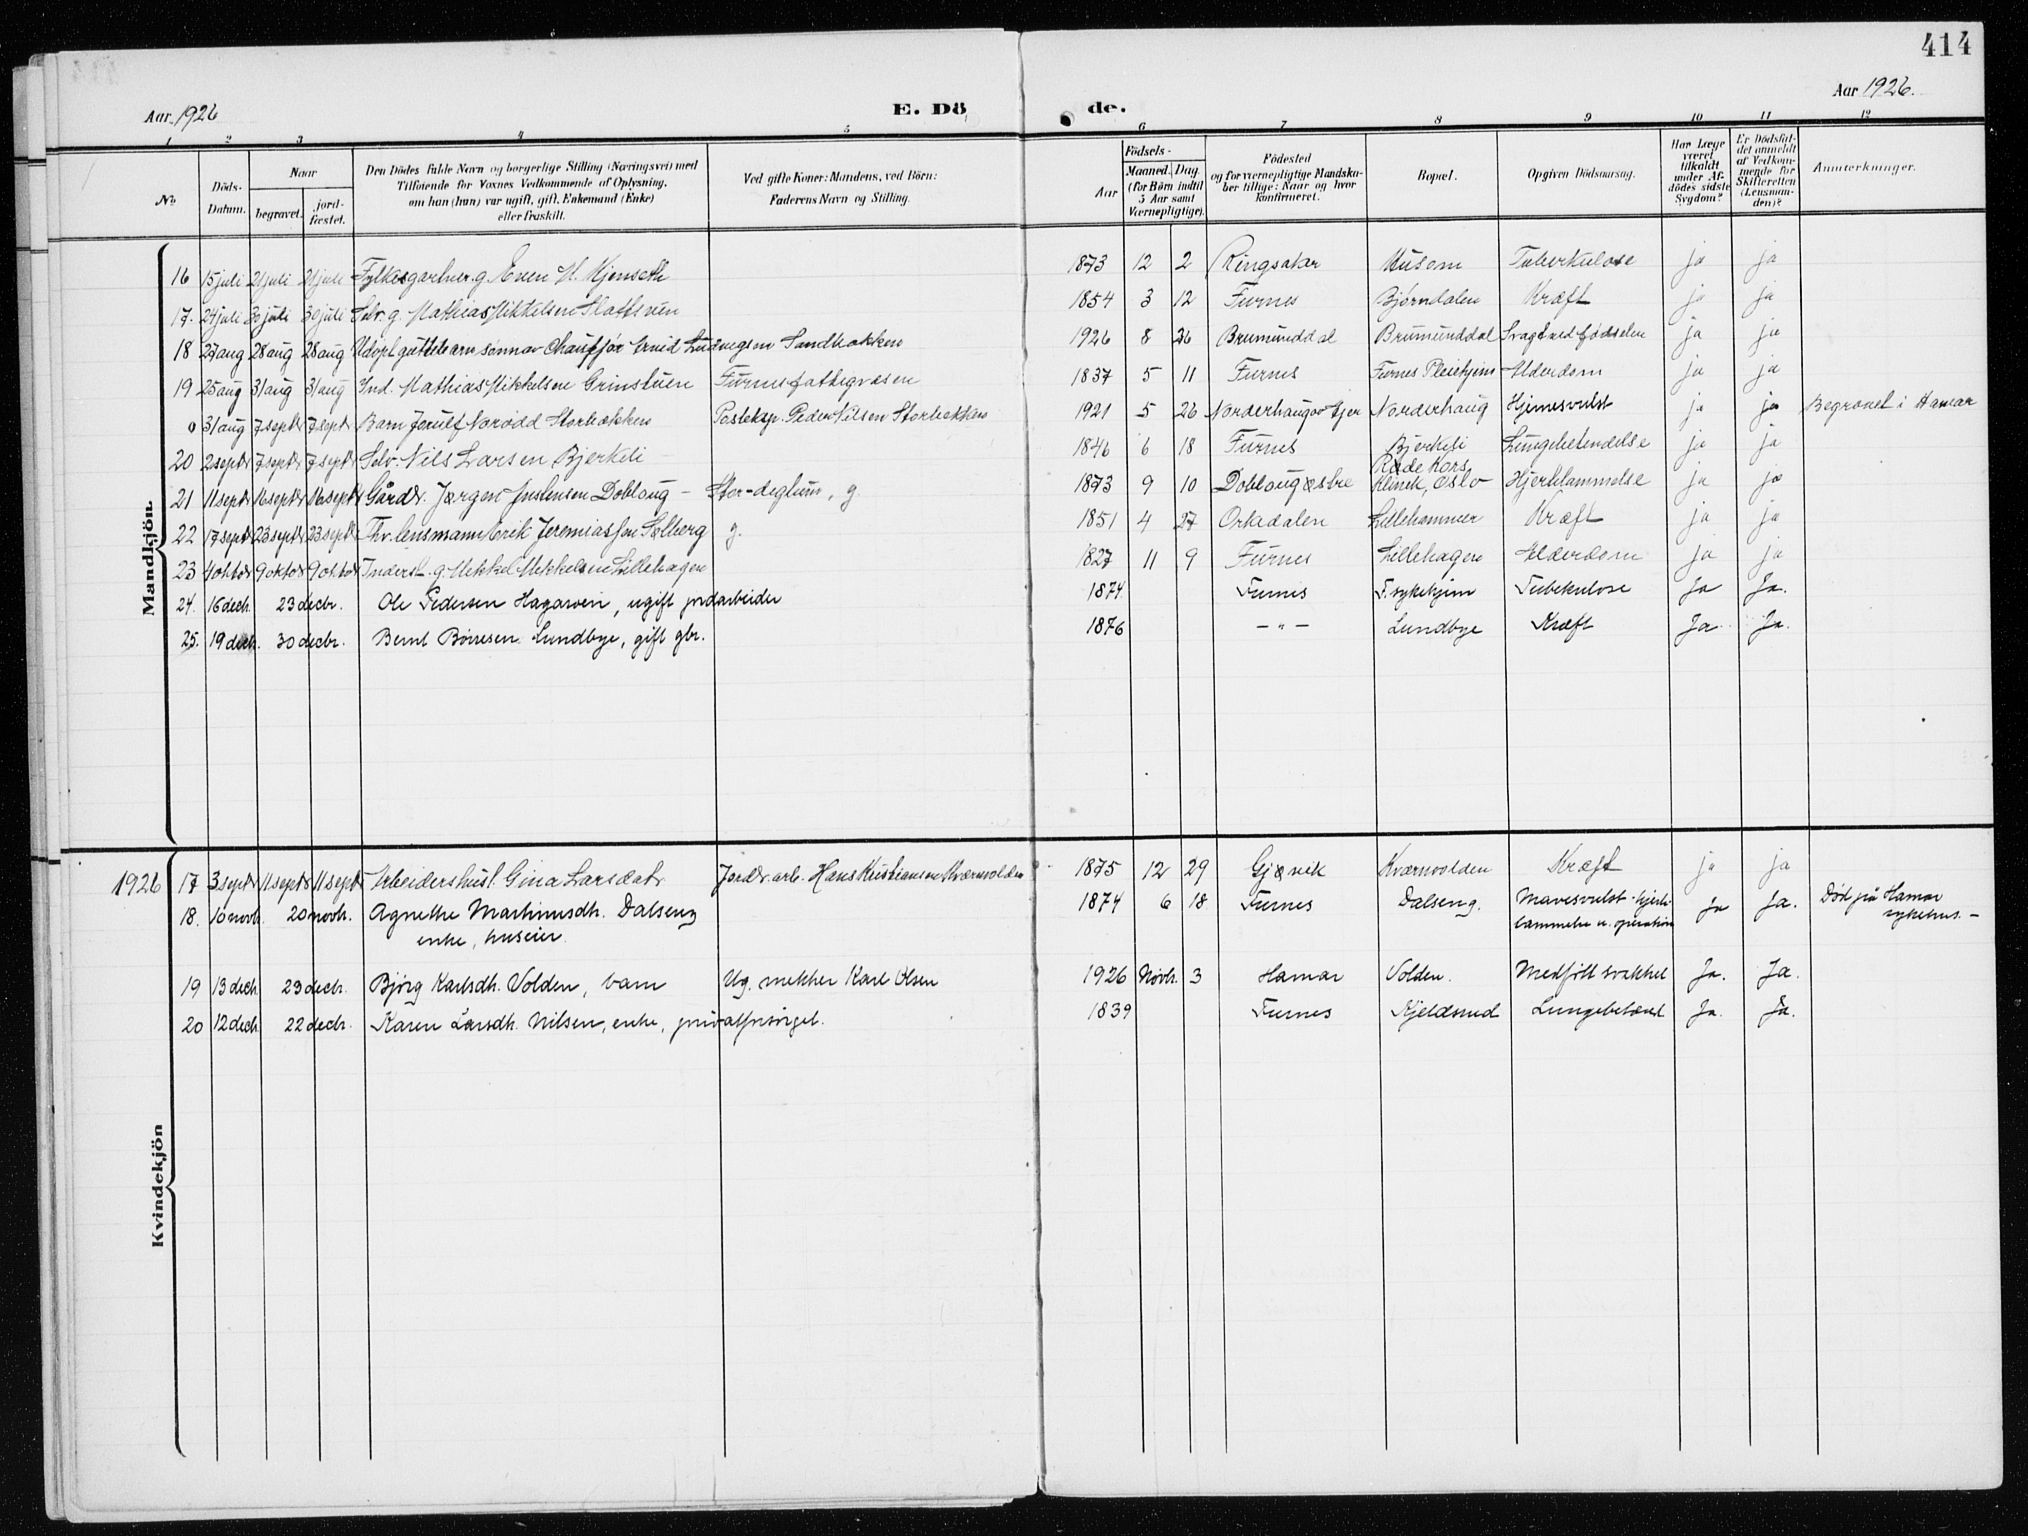 414
Aar 1926
E. Döde.
Aar 1926.
1 2 3 4 5 6 7 8 9 10 11 12
No. Döds-Datum. Naar begravet. jord-fæstet. Den Dödes fulde Navn og borgerlige Stilling (Næringsvei) med Tilföiende for Voxnes Vedkommende af Oplysning, om han (hun) var ugift, gift, Enkemand (Enke) eller fraskilt. Ved gifte Koner: Mandens, ved Börn: Faderens Navn og Stilling. Födsels- Aar Maaned. Dag. (for Börn indtil 5 Aar samt Værnepligtige). Födested og for værnepligtige Mandskaber tillige: Naar og hvor konfirmeret. Bopæl. Opgiven Dödsaarsag. Har Læge været tilkaldt under Afdödes sidste Sygdom? Er Dödsfaldet anmeldt af Vedkommende for Skifteretten (Lensmanden)? Anmærkninger.
Mandkjön.
16 15 juli 21 juli 21 juli Fylkesgartner g. Even M. Kjenseth 1873 12 2 Ringsaker Husom Tuberkulose ja ja
17. 24 juli 30 juli 30 juli Selv. g. Mathias Mikkelsen 1854 3 12 Furnes Bjørndalen Kræft ja ja
18 27 aug 28 aug 28 aug Udøpt guttebarn sønn av Chauffør Ludvigsen Sandbakken 1926 8 26 Brumunddal Brumunddal Svagt ved fødselen ja ja
19 25 aug 31 aug 31 aug Ind. Mathias Mikkelsen Grinstuen Furnes fattigvæsen 1837 5 11 Furnes Furnes Pleiehjem Alderdom ja ja
0 31 aug 7 septbr 7 septbr Barn Storbækken Peder Nilsen Storbækken 1921 5 26 Norderhaug Hjernesvulst ja ja Begravet i Hamar
20 2 septbr 7 septbr 7 septbr Selv. Nils Larsen Bjerkeli 1846 6 18 Furnes Bjerkeli Lungebetendelse ja ja
21 11 septbr 16 septbr 16 septbr Gårdbr. Jørgen Justensen Doblaug – Stor-deglum, g. 1873 9 10 Doblaug østre Røde Kors Klinik, Oslo Hjertelammelse ja ja
22 17 septbr 23 septbr 23 septbr Fhv. lensmann Erik Jeremiassen Solberg g. 1851 4 27 Orkedalen Lillehammer Kræft ja ja
23 4 oktbr 9 oktbr 9 oktbr Inderst. g. Mikkel Mikkelsen Lillehagen 1827 11 9 Furnes Lillehagen Alderdom ja ja
24. 16 decb. 23 decbr. Ole Pedersen Hagaveen, ugift jordarbeider 1874 Furnes F. sykehjem Tubekulose Ja Ja.
25. 19 decb. 30 decbr. Bernt Børresen Lundbye, gift gbr. 1876 — „ — Lundbye Kræft Ja Ja.
Kvindekjön
1926 17 3 septbr 11 septbr 11 septbr Arbeidershust. Gina Larsdatr Jordbr. arb. Hans Kristiansen Kværnvolden 1875 12 29 Gjøvik Kværnvolden Kræft ja ja
18. 10 novb. 20 novb. Agnethe Martinusdh. Dalseng 1874 6 18 Furnes Dalseng. Mavesvulst - hjerte- Ja Ja. Død på Hamar
enke, huseier. lammelse u. operation sykehus. –
19 13 decb. 23 decbr. Bjørg Karlsdh. Volden, barn Ug. mekker Karl Olsen 1926 Novb. 3 Hamar Volden. Medfött svakhet Ja. Ja.
20 12 decb. 22 decbr. Karen Larsdh. Nilsen, enke, privatforsørget. 1839 Furnes Kjeldsrud Lungebetænd Ja. Ja.